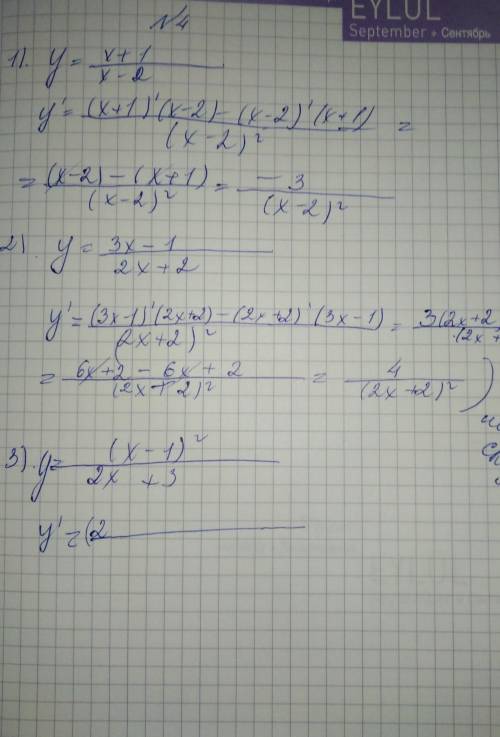 EYLUL
September • Сентябрь
№4
1). y = (x+1)/(x-2)
y' = ((x+1)'(x-2) - (x-2)'(x+1))/(x-2)² =
= ((x-2) - (x+1))/(x-2)² = -3/(x-2)²
2). y = (3x-1)/(2x+2)
y' = ((3x-1)'(2x+2) - (2x+2)'(3x-1))/(2x+2)² = 3(2x+2/(2x+
= (6x+2 - 6x + 2)/(2x+2)² = 4/(2x+2)² )
3). y = (x-1)²/(2x+3)
y' = (2